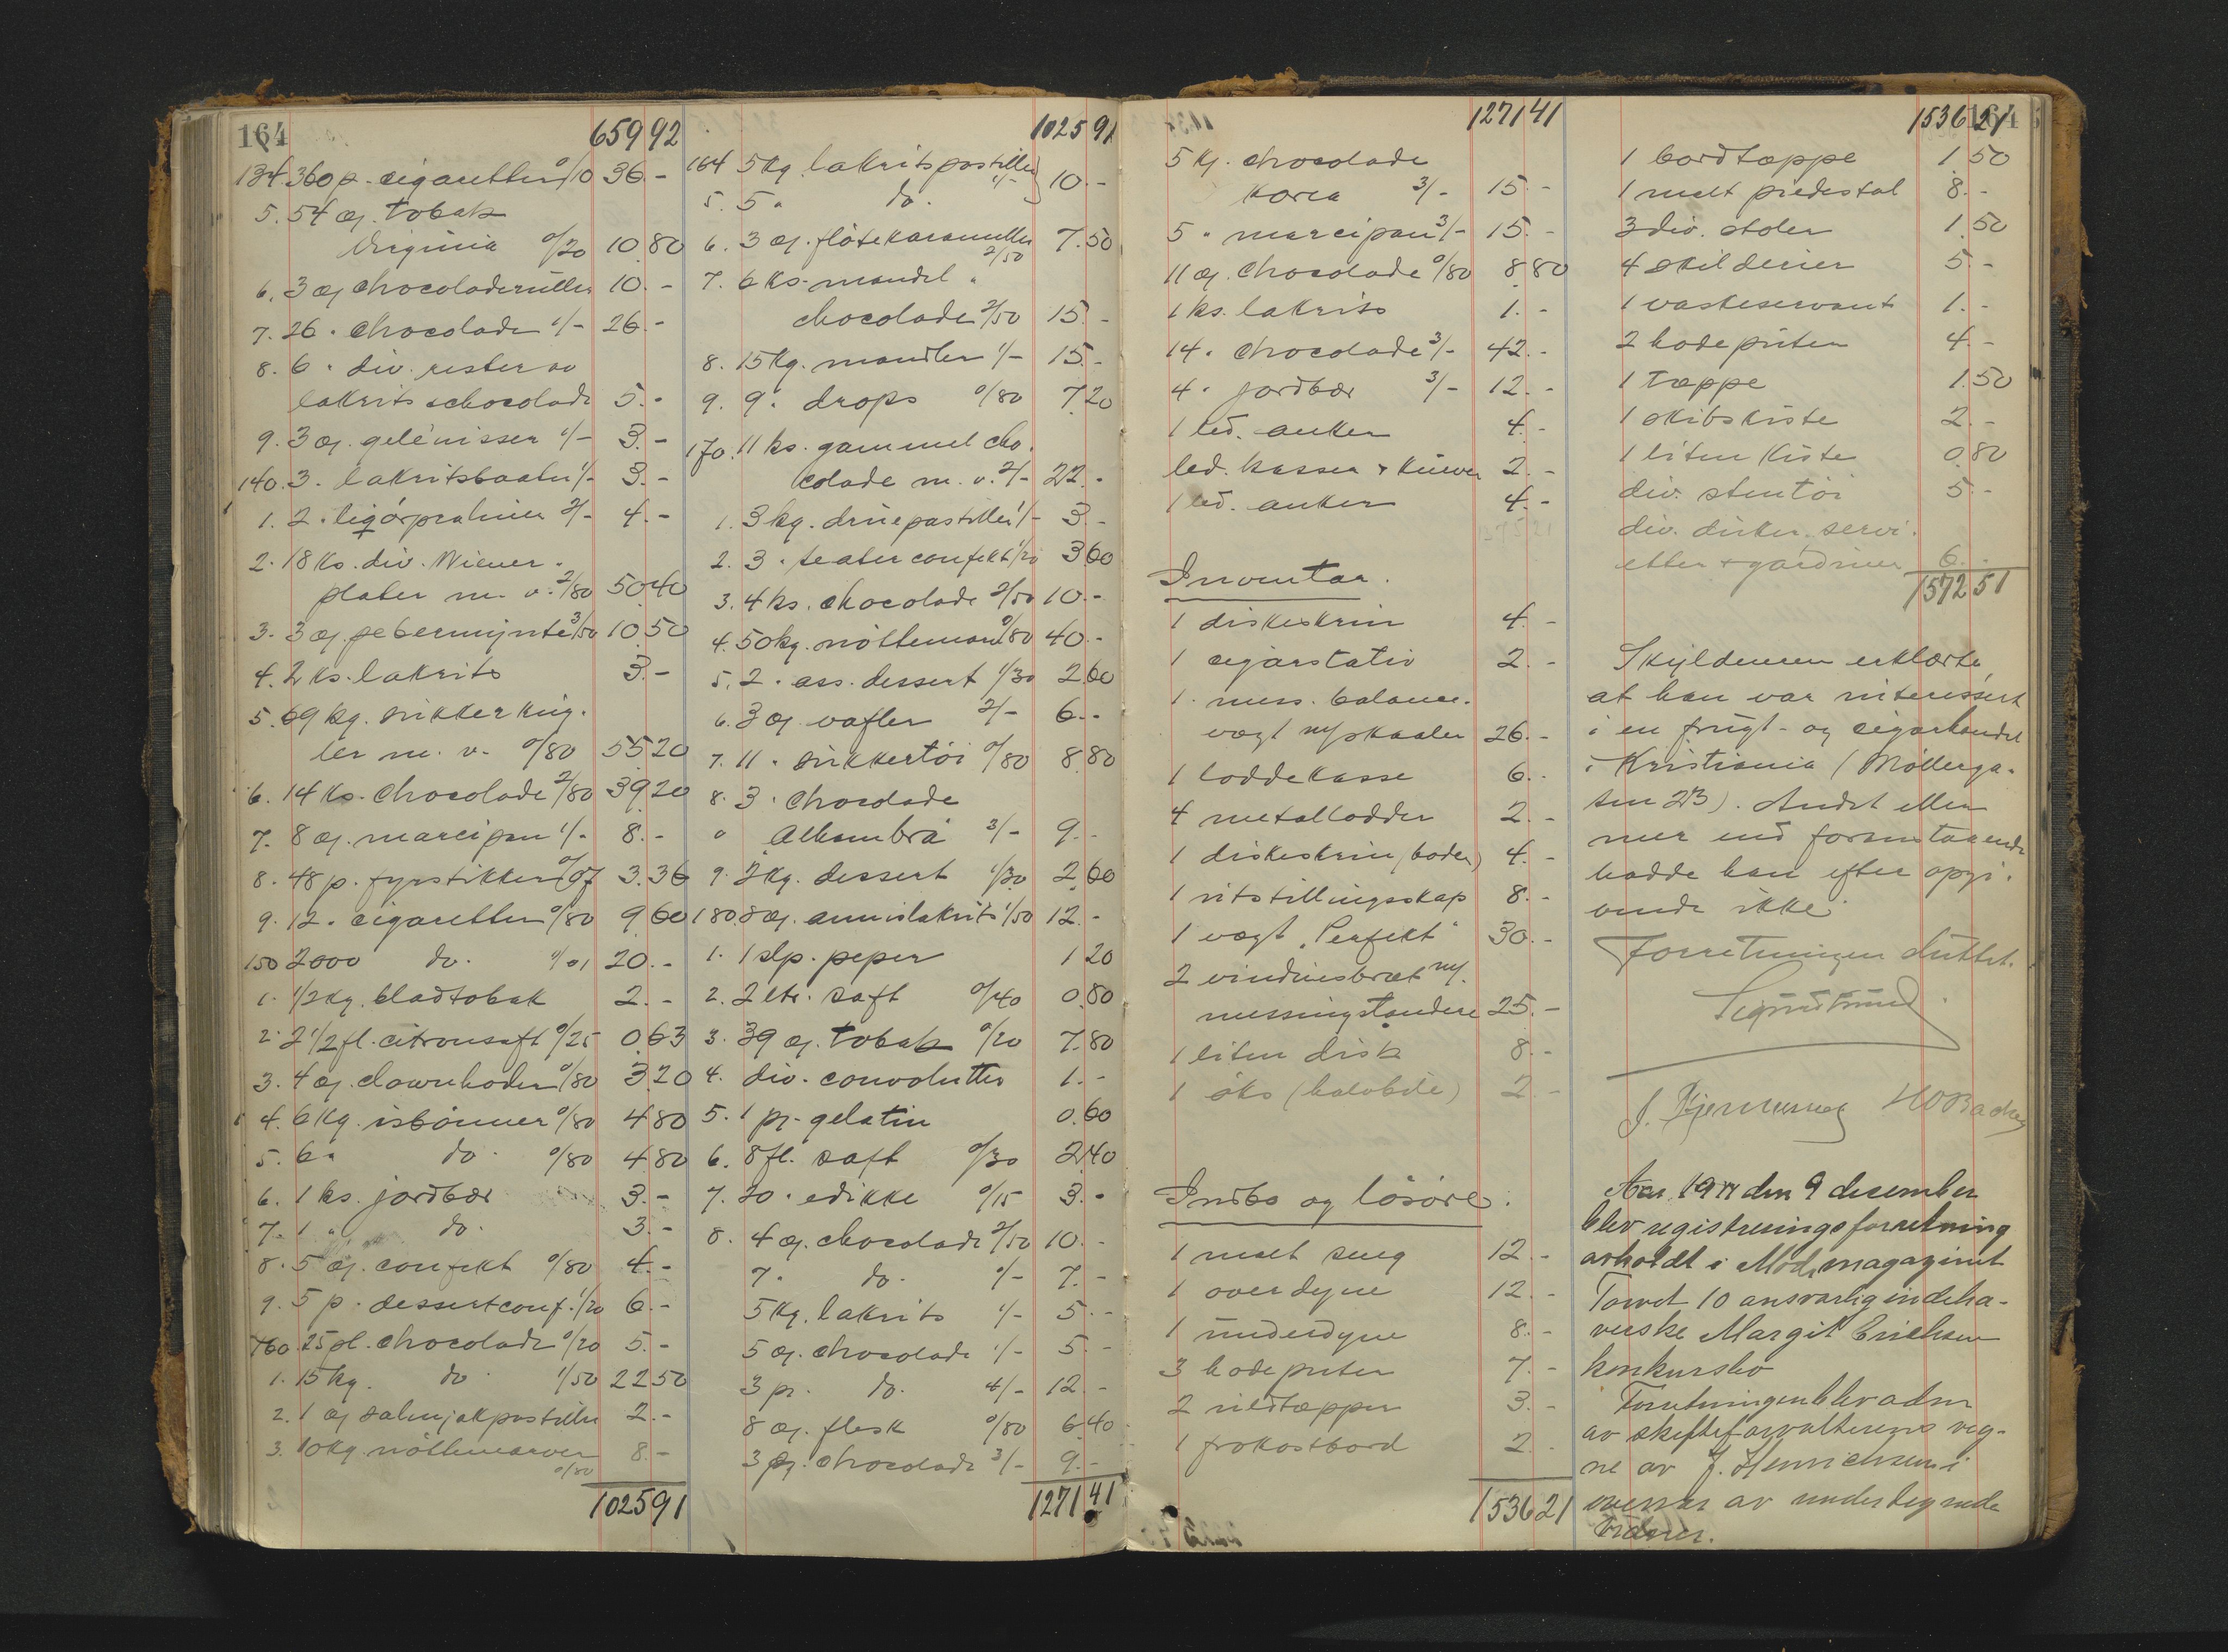 164
659 92
134. 360 p. cigaretter 0/10 36.-
5. 54 æ. tobak
Virginia 0/20 10.80
6. 3 æ chocoladeruller 10.-
7. 26 " chocolade 1/- 26.-
8. 6 " div. rester av
lakritschocolade 5.-
9. 3 æ. gelénisser 1/- 3.-
140. 3 " lakritsbaater 1/- 3.-
1. 2 " liqórpraliner 2/- 4.-
2. 18 ks. div. Wiener-
plater m. v. 2/80 50.40
3. 3 æ. pebermynte 3/50 10.50
4. 2 ks. lakrits 3.-
5. 69 kg. sukkerkug-
ler m. v. 0/80 55.20
6. 14 ks. chocolade 2/80 39.20
7. 8 æ. marcipan 1/- 8.-
8. 48 p. fyrstikker 0/07 3.36
9. 12 " cigaretter 0/80 9.60
150 2000 do. 0/01 20.-
1. 1/2 kg. bladtobak 2.-
2. 2 1/2 fl. citronsaft 0/25 0.63
3. 4 æ. clownhoder 0/80 3.20
4. 6 kg. isbönner 0/80 4.80
5. 6 " do. 0/80 4.80
6. 1 ks. jordbær 3.-
7. 1 " do. 3.-
8. 5 æ. confekt 0/80 4.-
9. 5 p. dessertconf. 1/20 6.-
160. 25 pl. chocolade 0/20 5.-
1. 15 kg. do. 1/50 22.50
2. 1 æ salmjakpastiller 2.-
3. 10 kg. nöttemarver
0/80 8.-
1025 91
1025 91
164 5 kg. lakritspastiller
5. 5 " do. 1/- 10.-
6. 3 æ. flötekarameller
2/50 7.50
7. 6 ks. mandel "
chocolade 2/50 15.-
8. 15 kg. mandler 1/- 15.-
9. 9 " drops 0/80 7.20
170. 11 ks. gammel cho-
colade m. v. 2/- 22.-
1. 3 kg. druepastiller 1/- 3.-
2. 3 " teaterconfekt 1/20 3.60
3. 4 ks. chocolade 2/50 10.-
4. 50 kg. nöttemarv 0/80 40.-
5. 2 " ass. dessert 1/30 2.60
6. 3 æ. vafler 2/- 6.-
7. 11 " sukkertöi 0/80 8.80
8. 3 " chocolade
Alhambra 3/- 9.-
9. 2 kg. dessert 1/30 2.60
180. 8 æ. annislakrits 1/50 12.-
1. 1 slp. peper 1.20
2. 2 ltr. saft 0/40 0.80
3. 39 æ. tobak 0/20 7.80
4. div. convolutter 1.-
5. 1 pr. gelatin 0.60
6. 8 fl. saft 0/30 2.40
7. 20 " edikke 0/15 3.-
8. 4 æ. chocolade 2/50 10.-
7 " do. 1/- 7.-
5 kg. lakrits 1/- 5.-
5 æ. chocolade 1/- 5.-
3 pr. do. 4/- 12.-
8 æ. flesk 0/80 6.40
3 æ. chocolade 3/- 9.-
1271 41
1271 41
5 kg. chocolade
Korea 3/- 15.-
5 " marcipan 3/- 15.-
11 æ. chocolade 0/80 8.80
1 ks. lakrits 1.-
14 " chocolade 3/- 42.-
4 " jordbær 3/- 12.-
1 led. anker 4.-
led. kasser + kurver 2.-
1 led. anker 4.-
Inventar.
1 diskeskrin 4.-
1 cigarstativ 2.-
1 mess. balance-
vægt m/skaaler 26.-
1 loddekasse 6.-
4 metallodder 2.-
1 diskeskrin (boden) 4.-
1 utstillingsskap 8.-
1 vægt "Perfekt" 30.-
2 vinduesbræt m/
messingstandere 25.-
1 liten disk 8.-
1 öks (halvbile) 2.-
Indbo og lösöre.
1 malt seng 12.-
1 overdyne 12.-
1 underdyne 8.-
3 hodeputer 7.-
2 uldtæpper 3.-
1 frokostbord 2.-
1536 21
1536 21
164
1 bordtæppe 1.50
1 malt piedestal 8.-
3 div. stoler 1.50
4 skilderier 5.-
1 vaskeservant 1.-
2 hodeputer 4.-
1 tæppe 1.50
1 skibskiste 2.-
1 liten kiste 0.80
div. stentöi 5.-
div. duker, servi-
etter + gardiner 6.-
1572 51
Skyldneren erklærte,
at han var interessert
i en frugt- og cigarhandel
i Kristiania (Möllerga-
ten 23). Andet eller
mer end foranstaaende
hadde han efter opgi-
vende ikke.
Forretningen sluttet.
Aar 19 den 9 desember
blev registreringsforretning
avholdt i Mode magazinet
Torvet 10 ansvarlig indeha-
verske Margit Erichsen
konkursbo
Forretningen blev adm
av skifteforvalterens veg-
ne av J. Henrichsen i
overvær av undertegnede
vidner.